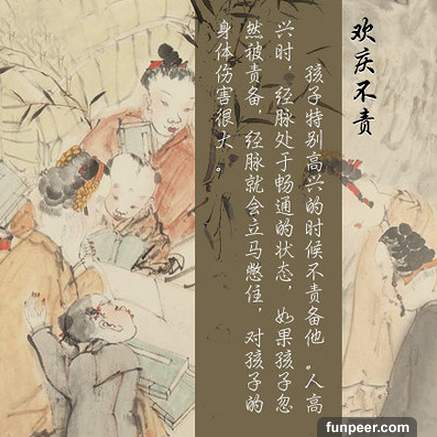 欢庆不责
孩子特别高兴的时候不责备他。人高
兴时，经脉处于畅通的状态，如果孩子忽
然被责备，经脉就会立马憋住，对孩子的
身体伤害很大。
funpeer.com